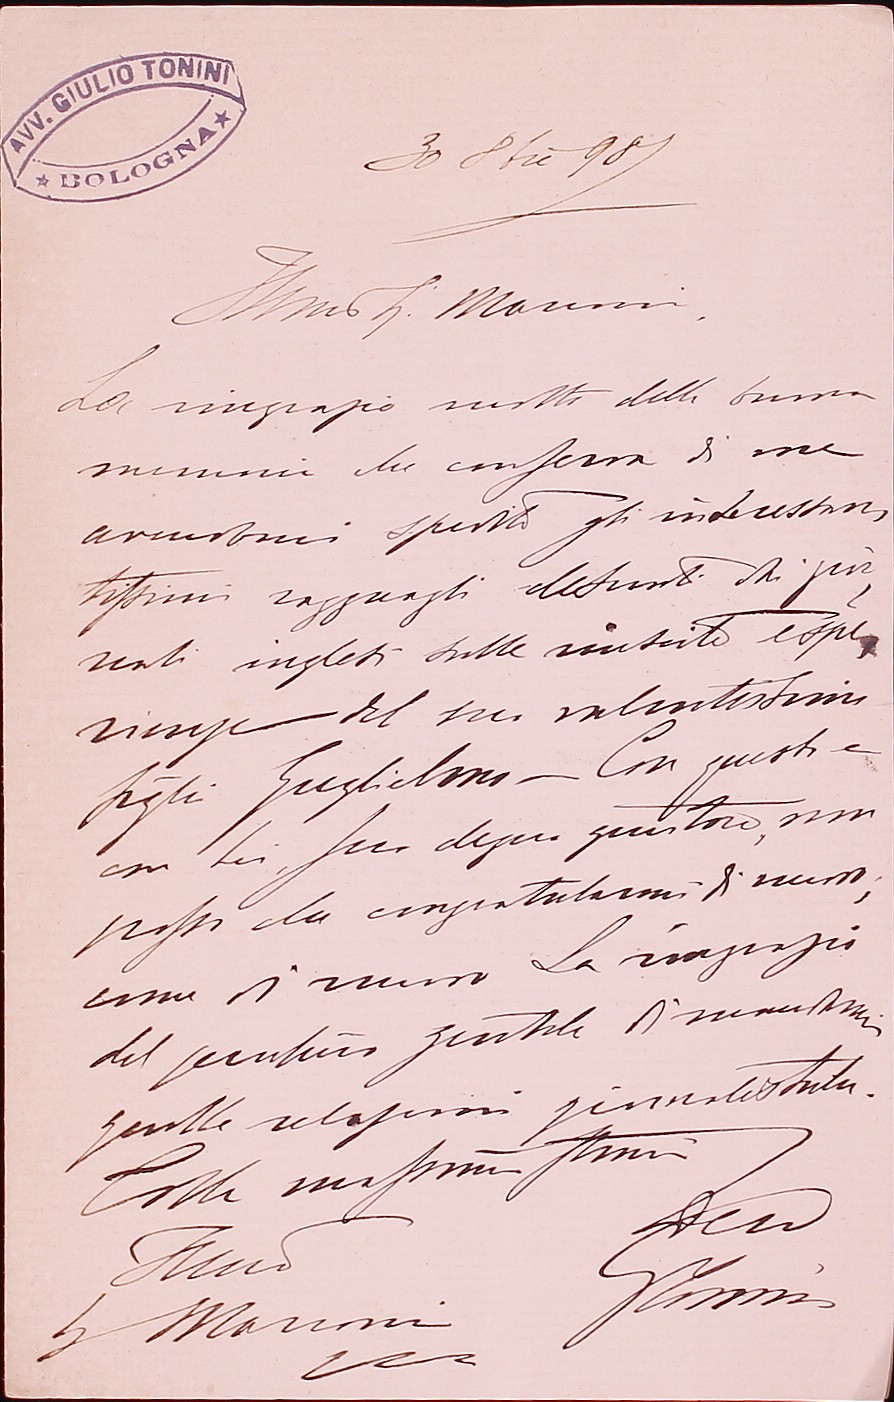 AVV. GIULIO TONINI
★ BOLOGNA ★
30 8bre 98
Illmo S. Marconi,
La ringrazio molto della buona
memoria che conserva di me
avendomi spedito gli interessan
tissimi ragguagli desunti dai gior
nali inglesi sulle riuscite espe
rienze del suo valentissimo
figlio Guglielmo — Con questi e
con Lei, suo degno genitore, non
posso che congratularmi di nuovo,
come di nuovo La ringrazio
del pensiero gentile di mandarmi
quelle relazioni giornalistiche.
Colla massima stima
Devo
GTonini
Illmo
S Marconi